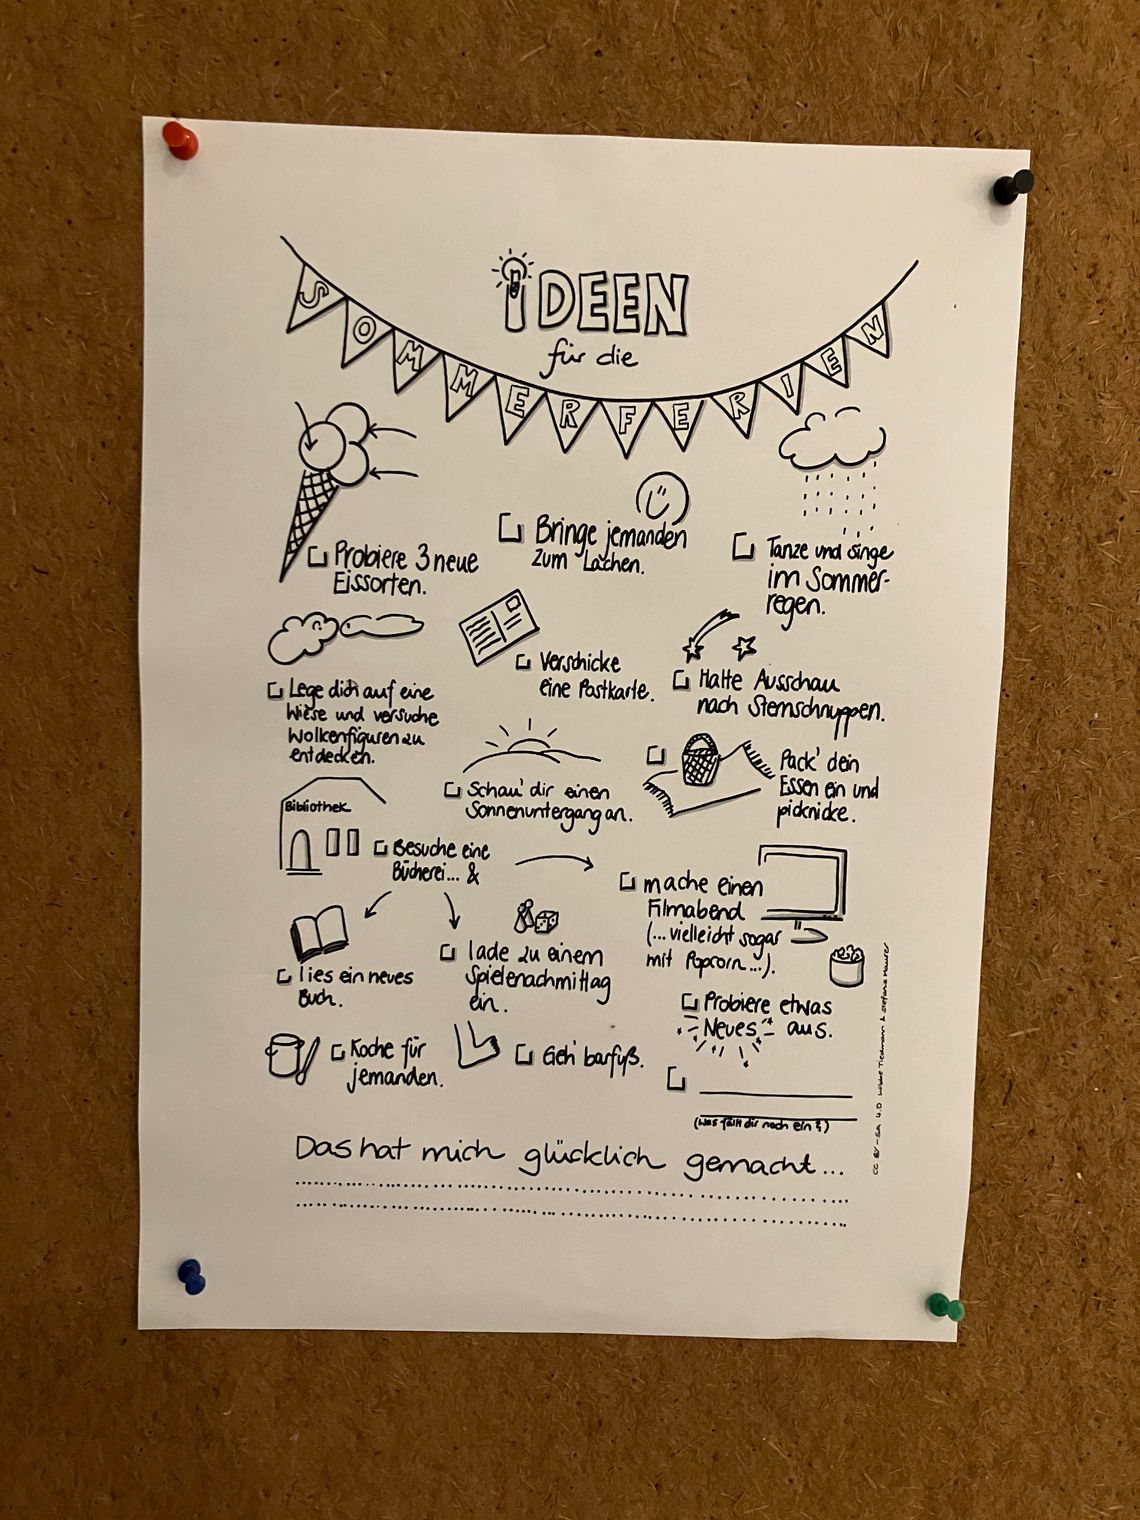 iDEEN
für die
SOMMERFERIEN
Probiere 3 neue
Eissorten.
Bringe jemanden
zum Lachen.
Tanze und singe
im Sommer-
regen.
Lege dich auf eine
Wiese und versuche
Wolkenfiguren zu
entdecken.
Verschicke
eine Postkarte.
Halte Ausschau
nach Sternschnuppen.
Schau' dir einen
Sonnenuntergang an.
Pack' dein
Essen ein und
picknicke.
Bibliothek
Besuche eine
Bücherei... &
lies ein neues
Buch.
lade zu einem
Spielenachmittag
ein.
mache einen
Filmabend
(...vielleicht sogar
mit Popcorn...).
Koche für
jemanden.
Geh' barfuß.
Probiere etwas
Neues aus.
(Was fällt dir noch ein?)
Das hat mich glücklich gemacht...
CC BY-SA 4.0 Wibke Tiedmann & Stefanie Maurer